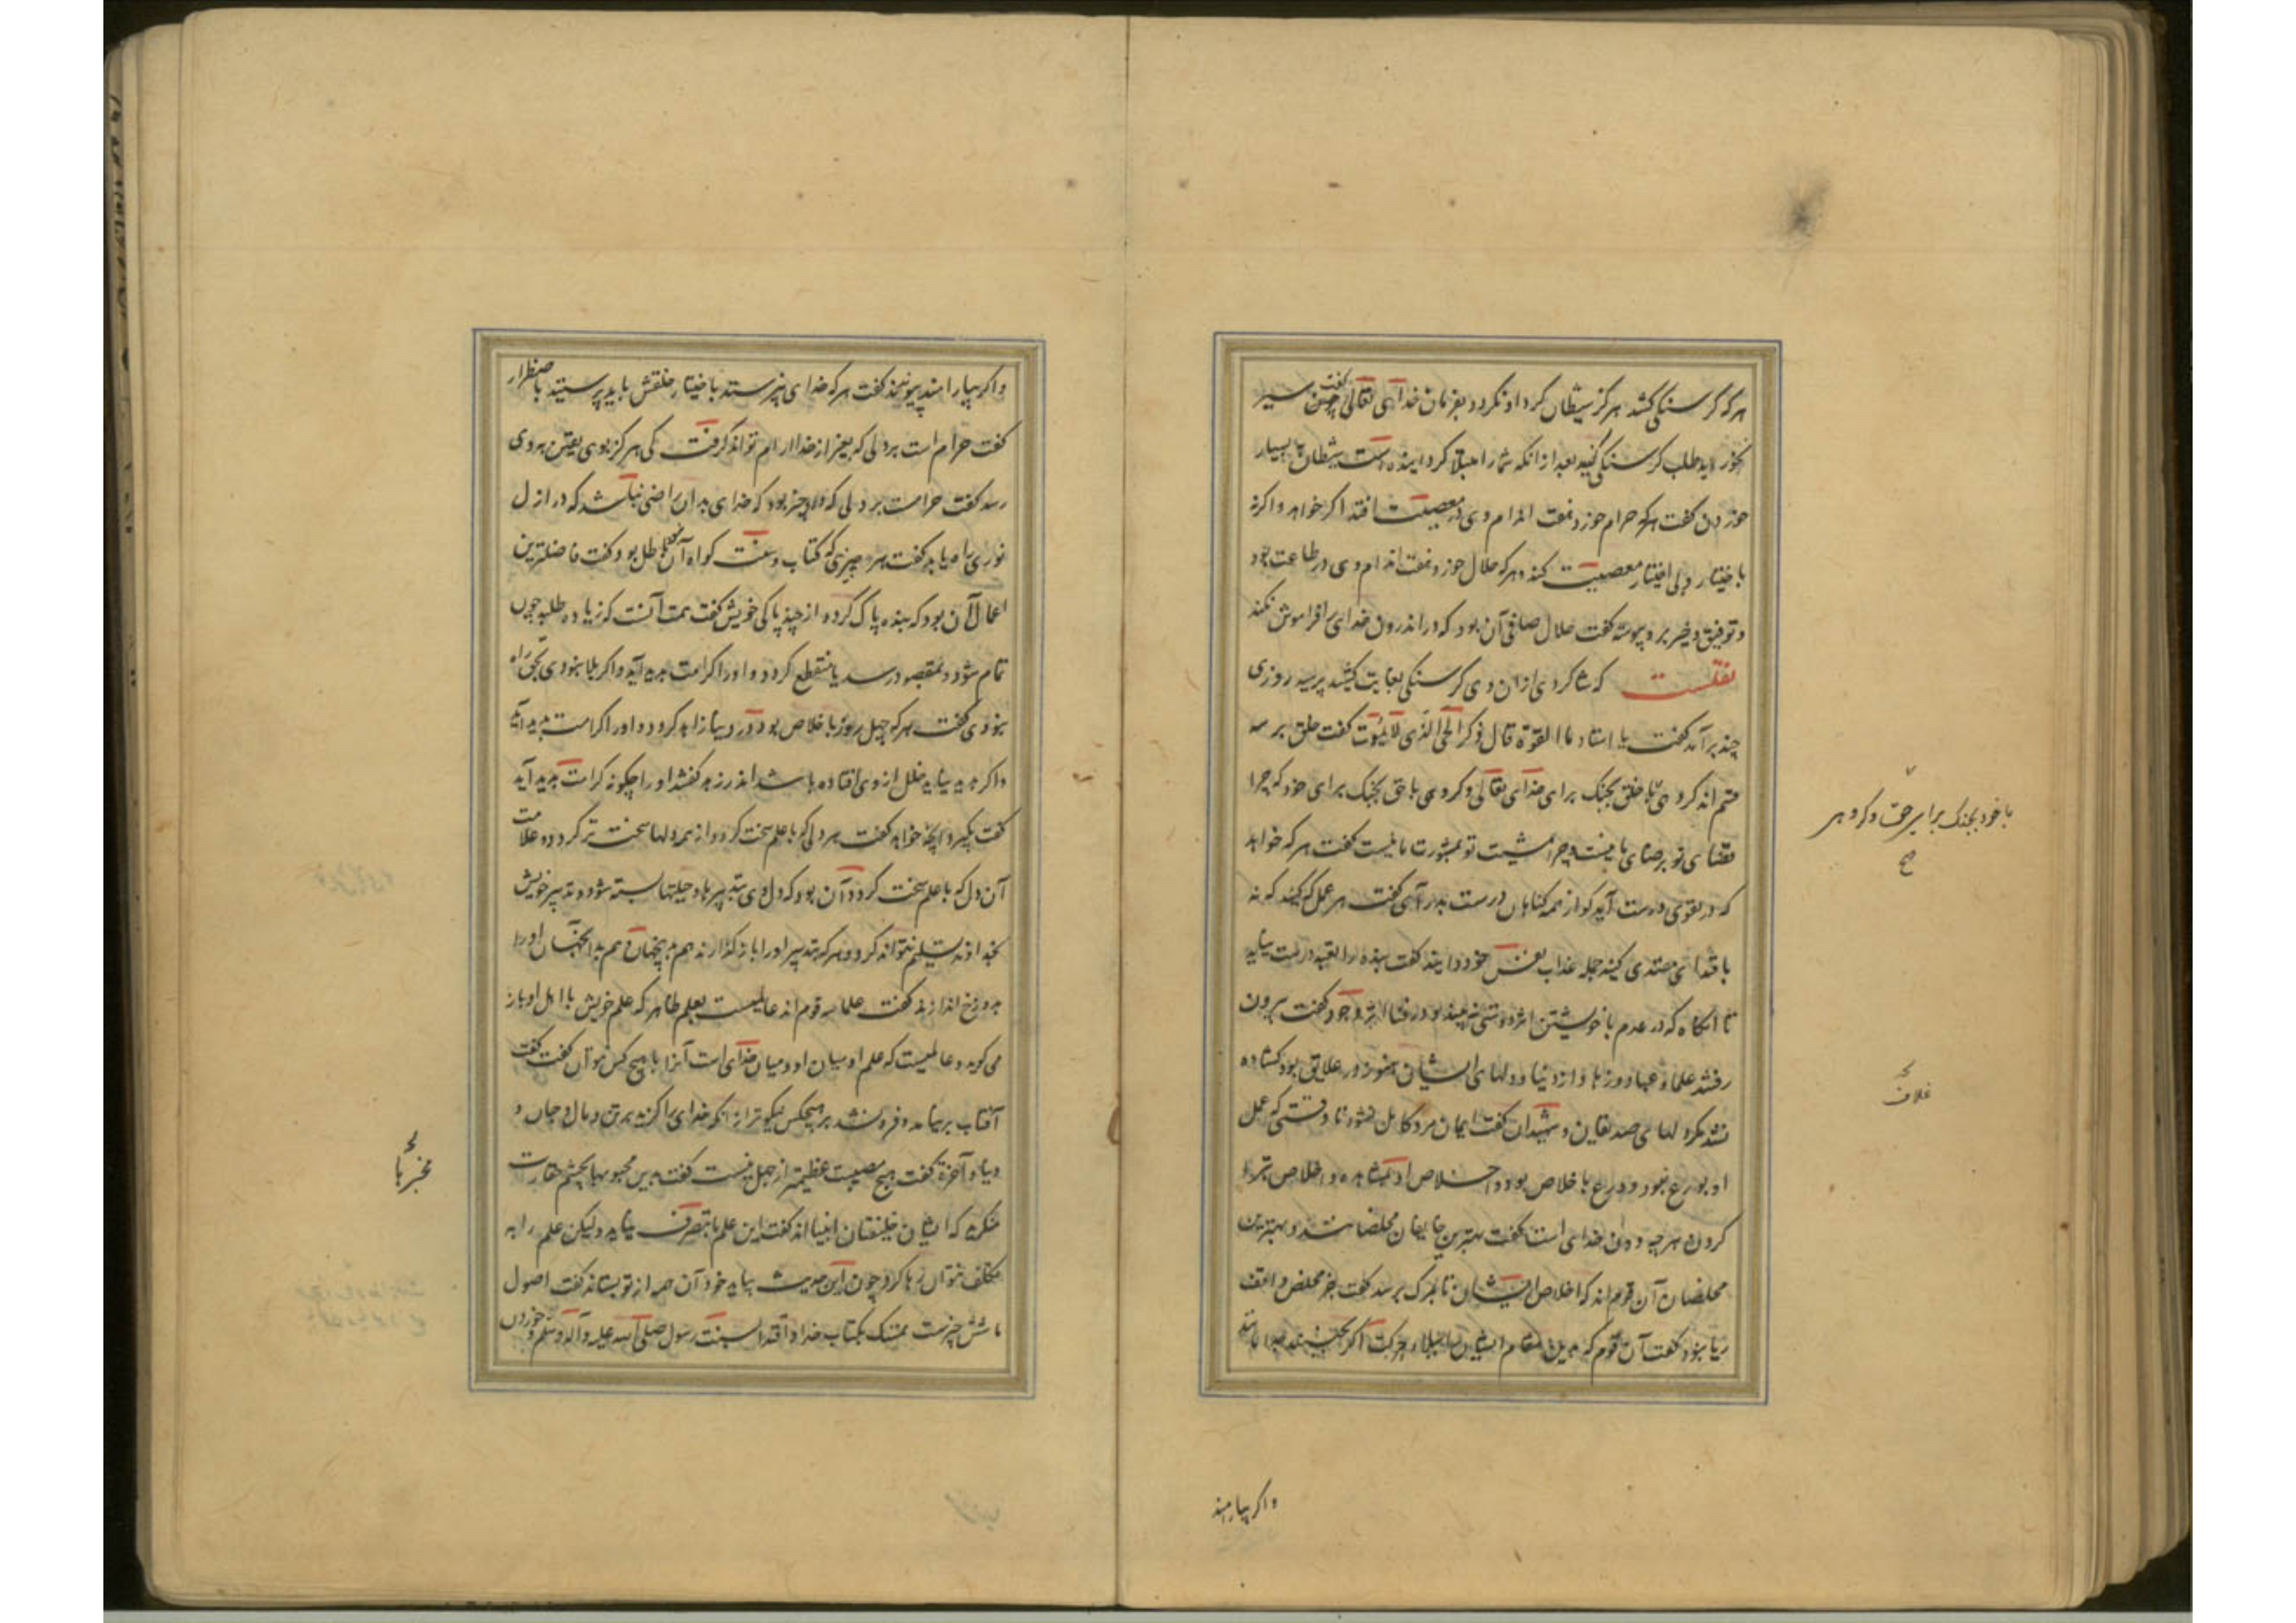 هرکه گرسنگی کشد هرگز شیطان گرد او نگردد بفرمان خدای تعالی گفت چون سیر
بخورید طلب گرسنگی کنید بعد از انکه شما را مبتلا گردانیده است شیطان بسیار
خوردن گفت هرکه حرام خورد هفت اندام وی در معصیت افتد اگر خواهد و اگر نه
باختیار و بی اختیار معصیت کند و هرکه حلال خورد هفت اندام وی در طاعت بود
و توفیق خیر بدو پیوسته گفت حلال صافی آن بود که در اندرون خدای را فراموش نکند
نقلست که شاگردی از ان وی گرسنگی بغایت کشید پرسید روزی
چند بر آمد گفت یا استاد ما القوة قال ذکر الحی الذی لایموت گفت خلق بر سه
قسم اند گروهی با خلق بجنگ برای خدای تعالی و گروهی با حق بجنگ برای خود که چرا
قضای تو برضای ما نیست و چرا مشیت تو بمشورت ما نیست گفت هرکه خواهد
که در تقوی درست آید گو از همه گناهان دست بدار آی گفت هر عمل که کنید که نه
باقتدای مقتدی کنید جمله عذاب نفس خود دانید گفت بنده را تعبد درست نیاید
تا آنگاه که در عدم باخویشتن اثر دوستی نه بیند و در فنا اثر وجود گفت بیرون
رفتند علما و عباد و زهاد از دنیا و دلهای ایشان هنوز در علایق بود گشاده
نشد مگر دلهای صدیقان و شهیدان گفت ایمان مرد کامل نشود تا وقتی که عمل
او بورع نبود و ورع با خلاص بود و اخلاص او بمشاهده و اخلاص تبرا
کردن هرچه دون خدای است گفت بهترین خایفان مخلصانند و بهترین
مخلصان آن قوم اند که اخلاص ایشان تا بمرگ برسد گفت جز مخلص واقف
ریا نبود گفت آن قوم که بدین مقام ایشان را ببلا حرکت اگر بجنبند جدا مانند
با خود بجنگ برای حق و گروهی
صح
علایق
واگر بیارامند
واگر بیارامند پیوستند گفت هرکه خدای نپرستد باختیار خلقش باید پرستید باضطرار
گفت حرام است بر دلی که بغیر از خدا ارام تواند گرفت که هرگز بوی یقین بدوی
رسد گفت حرامست بر دلی که درو چیزی بود که خدای بدان راضی نباشد که در ان دل
نوری راه یابد گفت هر چیزی که کتاب و سنت گواه آن نبود باطل بود و گفت فاضلترین
اعمال آن بود که بنده پاک گردد از چیز پاکی خویش گفت همت آنست که زیاده طلبد چون
تمام شود و بمقصود رسد یا منقطع گردد و او را کرامت پدید آید و اگر بلا بنودی بحق راه
نبودی گفت هرکه چهل روز باخلاص بود در دنیا زاهد گردد و او را کرامت پدید آید
و اگر پدید نیاید خلل از وی افتاده باشد اندر زهد گفتند او را چگونه کرامت پدید آید
گفت بگیرد آنچه خواهد گفت هر دلی که با علم سخت گردد از همه دلها سخت تر گردد و علامت
آن دل که با علم سخت گردد آن بود که دل وی بتدبیرها و حیلتها بسته شود و تدبیر خویش
بخداوند تسلیم نتواند کرد و هرکه بتدبیر او را باز گذارند هم بدین جهان و هم بدان جهان او را
بدوزخ اندازند گفت علما سه قوم اند عالمیست بعلم ظاهر که علم خویش با اهل او باز
می گوید و عالمیست که علم او میان او و میان خدای است آنرا با هیچ کس نتوان گفت گفت
آفتاب بر نیامد و فرو نشد بر هیچکس نیکوتر از انکه خدای را گزیند بر تن و مال و جان و
دنیا و آخرة گفت هیچ معصیت عظیمتر از جهل نیست گفت بدین محجوبها بچشم حقارت
منگرید که ایشان خلیفتان انبیا اند گفت این علم ما بتصرف نیاید ولیکن علم را به
تکلف نتوان رها کرد چون این حدیث بیاید خود آن همه از تو بستاند گفت اصول
ما شش چیزست تمسک بکتاب خدا و اقتدا بسنت رسول صلی الله علیه و آله و سلم و خوردن